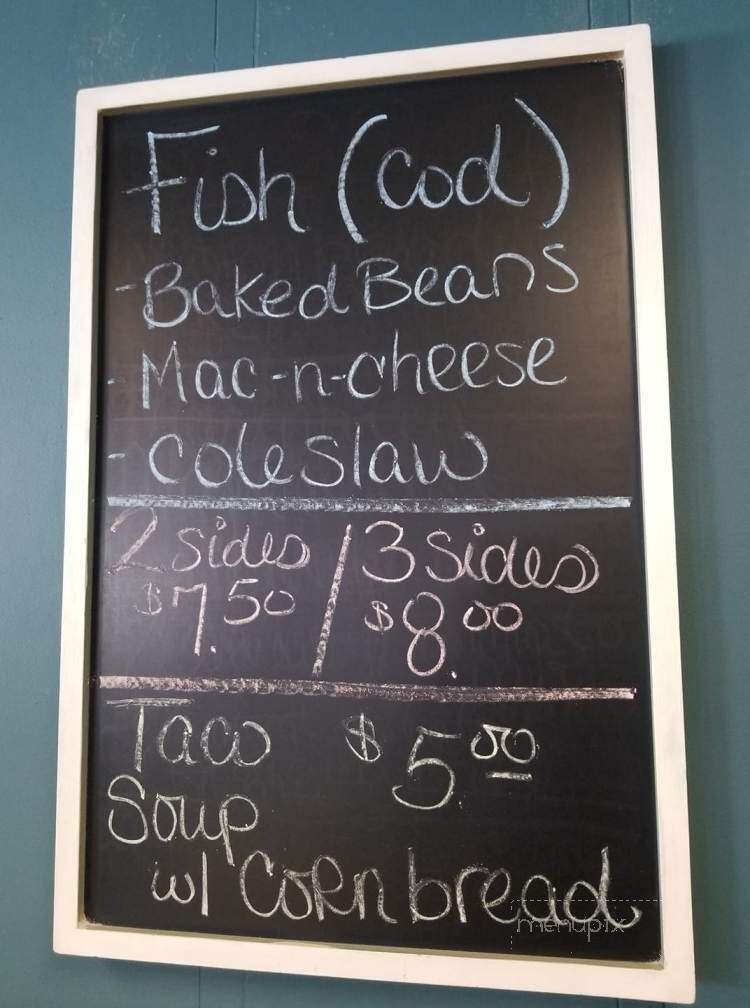 Fish (Cod)
-Baked Beans
-Mac-n-cheese
-coleslaw
2 sides / 3 sides
$7.50 $8.00
Taco $5.00
Soup
w/ Cornbread
menupix